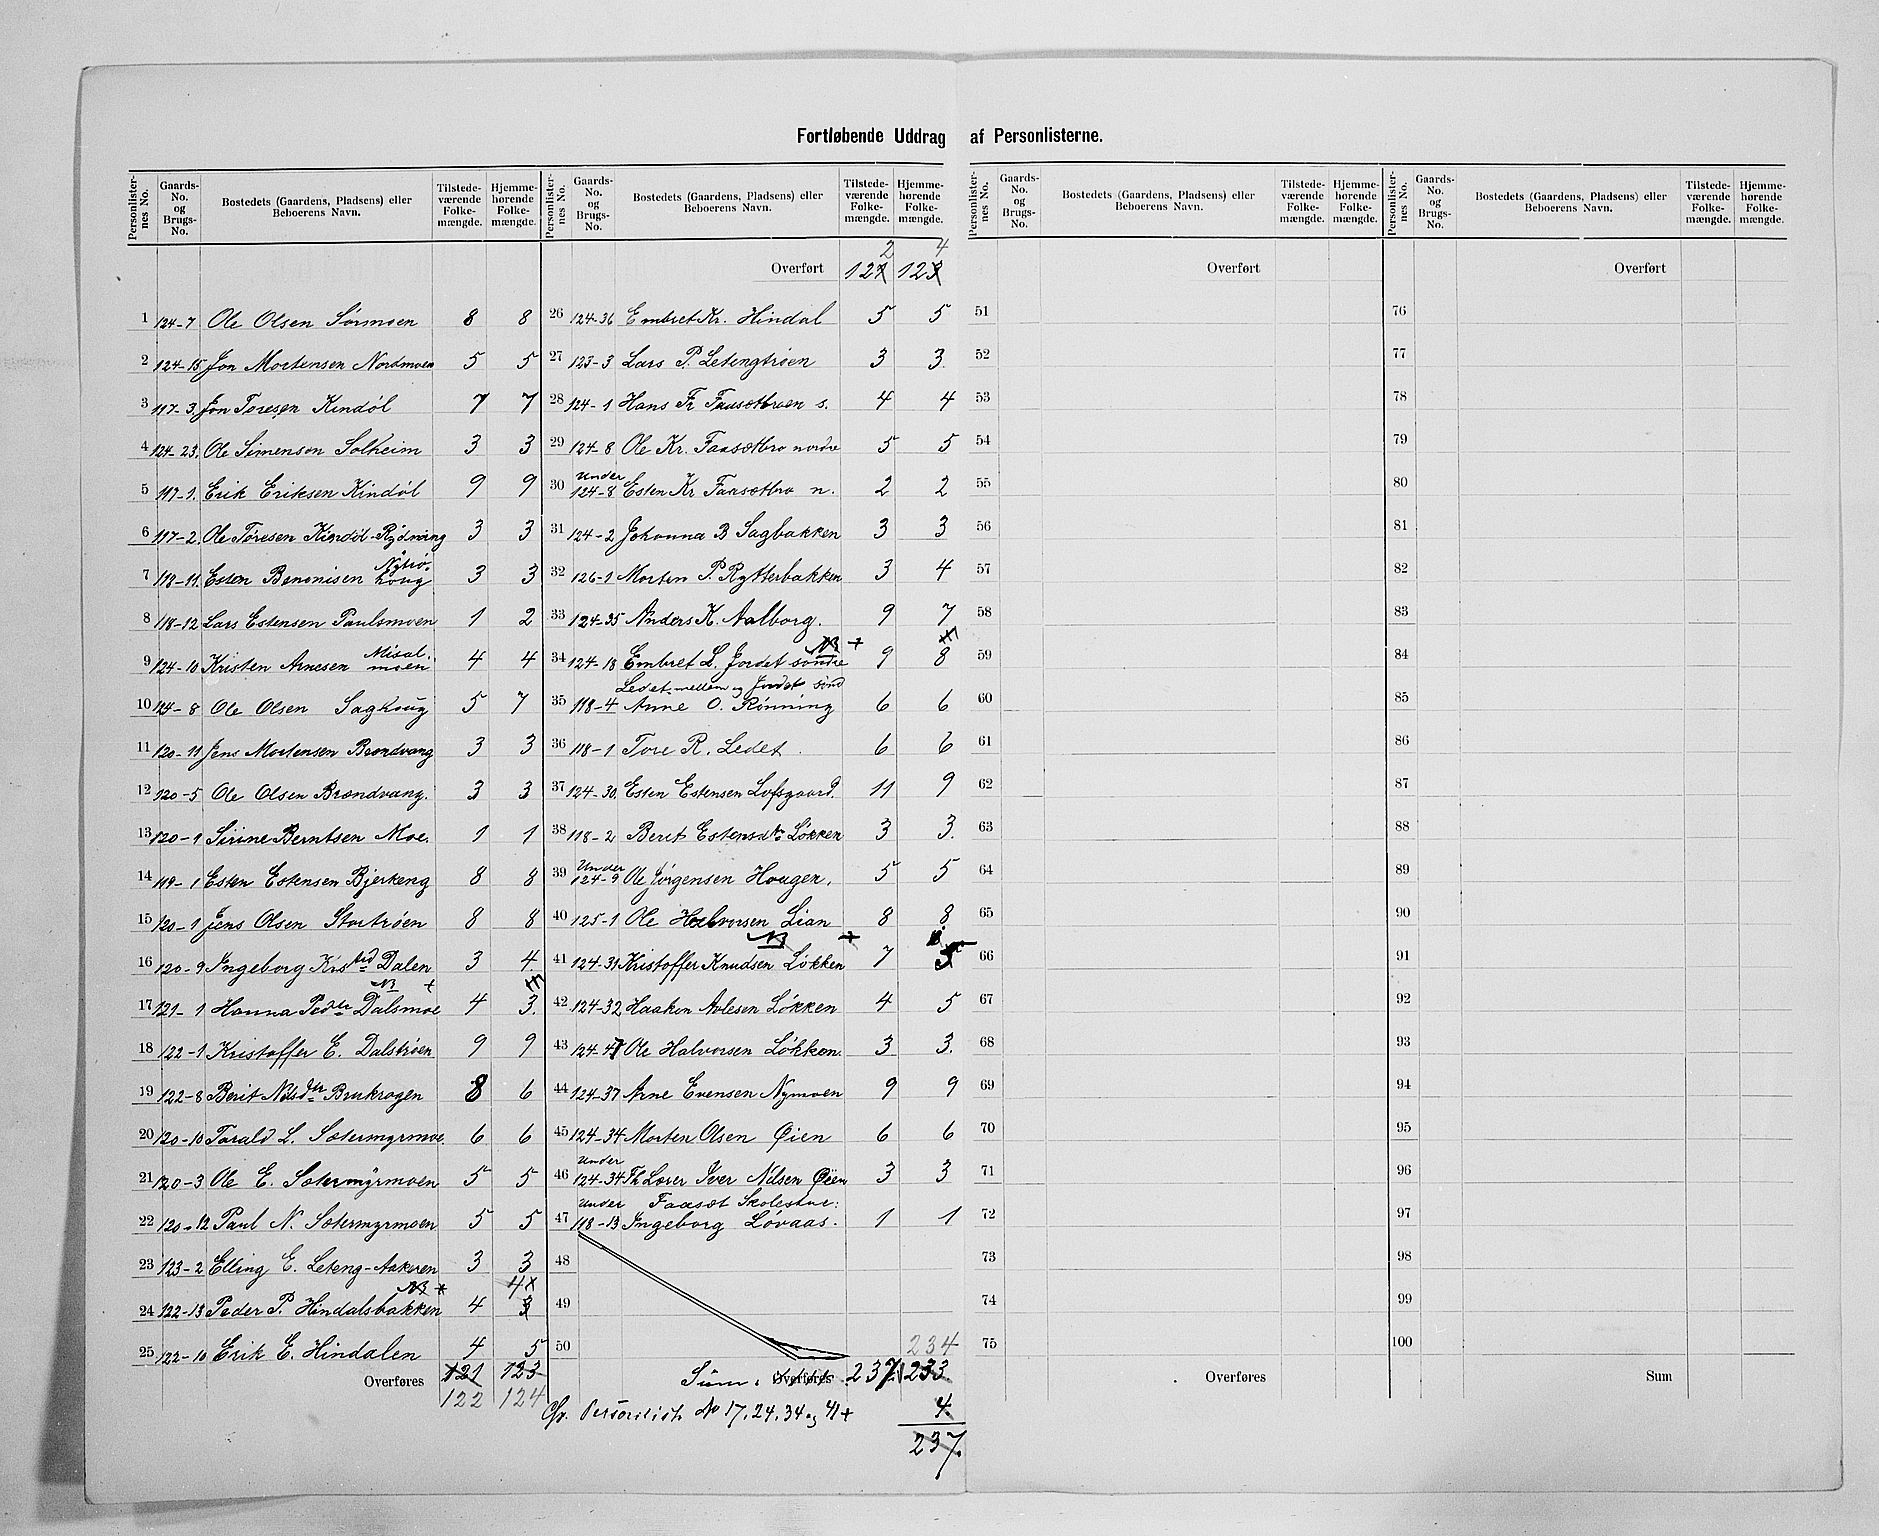 Fortløbende Uddrag af Personlisterne.
Personlisternes No. Gaards-No. og Brugs-No. Bostedets (Gaardens, Pladsens) eller Beboerens Navn. Tilstedeværende Folkemængde. Hjemmehørende Folkemængde.
1 124-7 Ole Olsen Sørmoen 8 8
2 124-15 Jon Mortensen Nordmoen 5 5
3 117-3. Jon Toresen Kindøl 7 7
4 124-23. Ole Simensen Solheim 3 3
5 117-1. Erik Eriksen Kindøl 9 9
6 117-2. Ole Toresen Kindøl-Rydning 3 3
7 118-11. Esten Benonisen Nytrøhoug 3 3
8 118-12 Lars Estensen Paulsmoen 1 2
9 124-10 Kristen Arnesen Misalmoen 4 4
10 124-8 Ole Olsen Saghoug 5 7
11 120-11 Jens Mortensen Brændvang 3 3
12 120-5 Ole Olsen Brændvang. 3 3
13 120-1 Sirine Berntsen Moe. 1 1
14 119-1 Esten Estensen Bjerkeng 8 8
15 120-1 Jens Olsen Stortrøen 8 8
16 120-9 Ingeborg Dalen 3 4
NB +
17 121-1 Hanna Pedtr Dalsmoe 4 3.
18 122-1 Kristoffer E. Dalstrøen 9 9
19 122-8 Berit Nilsdtr Brukrogen 8 6
20 120-10 Torald L. Sætermyrmoe. 6 6
21 120-3 Ole E. Sætermyrmoen 5 5
22 120-12 Paul N. Sætermyrmoen 5 5
23 123-2 Elling E. Leteng-Aakeren 3 3
NB + 4x
24 122-13 Peder P. Hindalsbakken 4 3
25 122-10 Erik E. Hindalen 4 5
Overføres 121 123
122 124
Personlisternes No. Gaards-No. og Brugs-No. Bostedets (Gaardens, Pladsens) eller Beboerens Navn. Tilstedeværende Folkemængde. Hjemmehørende Folkemængde.
2 4
Overført 121 123
26 124-36 Embret Kr. Hindal 5 5
27 123-3 Lars P. Letengtrøen 3 3.
28 124-1 Hans Fr Faasætbroen s. 4 4
29 124-8 Ole Kr. Faasætbro nordre 5 5
30 Under 124-8 Esten Kr Faasætbro n. 2 2
31 124-2 Johanna B Sagbakken 3 3
32 126-1 Morten P. Rytterbakken 3 4
33 124-35 Anders K. Aalborg. 9 7
NB +
34 124-18 Embret L. Jordet søndre 9 8
Ledet mellem og Jordet sønd
35 118-4 Anne O. Rønning 6 6
36 118-1 Tore R. Ledet. 6 6
37 124-30. Esten Estensen Lofsgaard. 11 9
38 118-2 Berit Løkken 3 3.
39 Under 124-9 Ole Jørgensen Haugen. 5 5
40 125-1 Ole Halvorsen Lian 8 8
NB +
41 124-31 Kristoffer Knudsen Løkken 7 5
42 124-32 Haaken Løkken 4 5
43 124-47 Ole Halvorsen Løkken. 3 3.
44 124-37 Arne Evensen Nymoen 9 9
45 124-34 Morten Olsen Øien 6 6
46 Under 124-34 Iver Nilsen Øien 3 3
47 Under Faasæt Skolestue: 118-13 Ingeborg Løvaas. 1 1
48
49
50 234
Sum. Overføres 237. 233.
Personlist No 17, 24, 34 og 41 + 4.
237.
Personlisternes No. Gaards-No. og Brugs-No. Bostedets (Gaardens, Pladsens) eller Beboerens Navn. Tilstedeværende Folkemængde. Hjemmehørende Folkemængde.
Overført
51
52
53
54
55
56
57
58
59
60
61
62
63
64
65
66
67
68
69
70
71
72
73
74
75
Overføres
Personlisternes No. Gaards-No. og Brugs-No. Bostedets (Gaardens, Pladsens) eller Beboerens Navn. Tilstedeværende Folkemængde. Hjemmehørende Folkemængde.
Overført
76
77
78
79
80
81
82
83
84
85
86
87
88
89
90
91
92
93
94
95
96
97
98
99
100
Sum